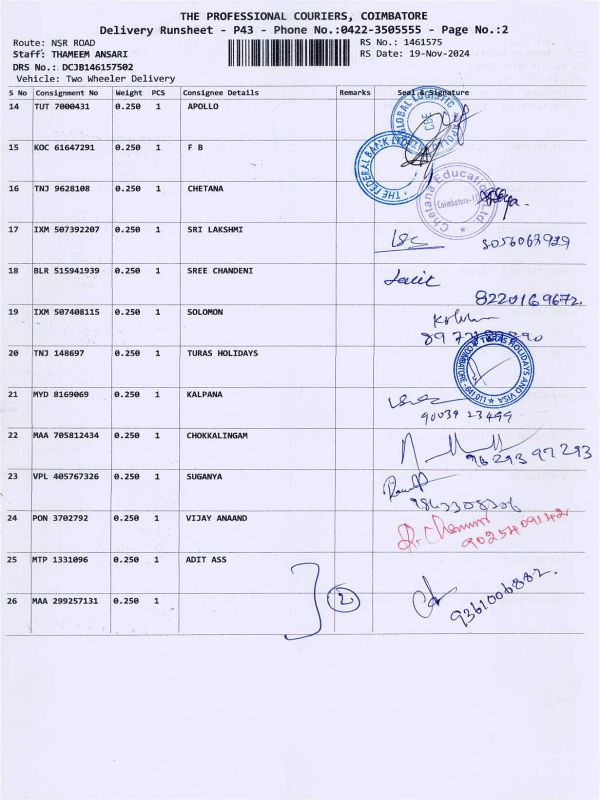 THE PROFESSIONAL COURIERS, COIMBATORE
Delivery Runsheet - P43 - Phone No.:0422-3505555 - Page No.:2
Route: NSR ROAD RS No.: 1461575
Staff: THAMEEM ANSARI RS Date: 19-Nov-2024
DRS No.: DCJB146157502
Vehicle: Two Wheeler Delivery
S No Consignment No Weight PCS Consignee Details Remarks Seal & Signature
14 TUT 7000431 0.250 1 APOLLO
GLOBAL LOGISTIC
15 KOC 61647291 0.250 1 F B
THE FEDERAL BANK LTD
16 TNJ 9628108 0.250 1 CHETANA
Chetana Education Ltd
Coimbatore-11
17 IXM 507392207 0.250 1 SRI LAKSHMI
18 BLR 515941939 0.250 1 SREE CHANDENI
8220169672.
19 IXM 507408115 0.250 1 SOLOMON
20 TNJ 148697 0.250 1 TURAS HOLIDAYS
TURAS HOLIDAYS AND VISA
COIMBATORE-641 011
21 MYD 8169069 0.250 1 KALPANA
90039 23499
22 MAA 705812434 0.250 1 CHOKKALINGAM
96293 97 293
23 VPL 405767326 0.250 1 SUGANYA
24 PON 3702792 0.250 1 VIJAY ANAAND
9025409142
25 MTP 1331096 0.250 1 ADIT ASS
2
26 MAA 299257131 0.250 1
9361006882.